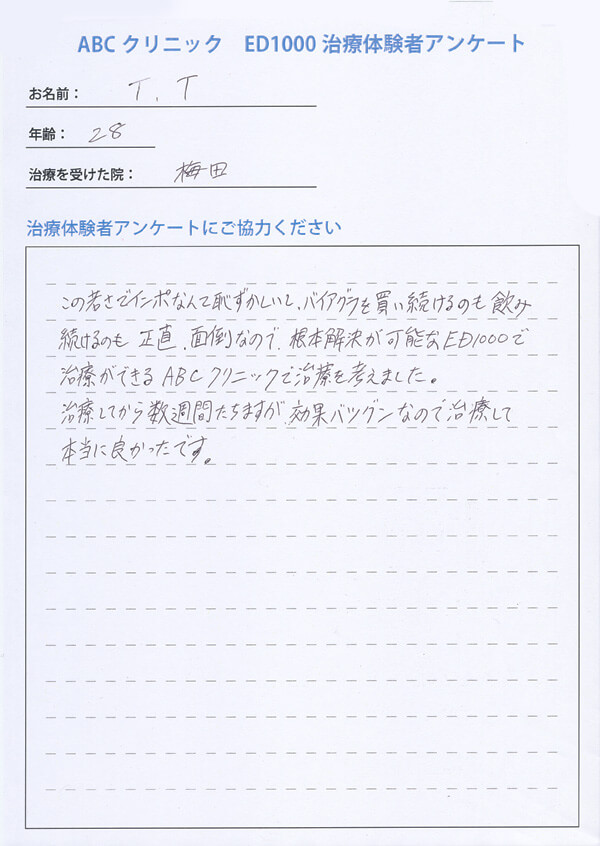 ABC クリニック　ED1000 治療体験者アンケート
お名前： T. T
年齢： 28
治療を受けた院： 梅田
治療体験者アンケートにご協力ください
この若さでインポなんて恥ずかしいし、バイアグラを買い続けるのも飲み
続けるのも正直、面倒なので、根本解決が可能なED1000で
治療ができるABCクリニックで治療を考えました。
治療してから数週間たちますが効果バツグンなので治療して
本当に良かったです。